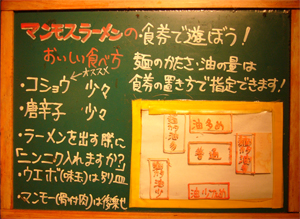 マンモスラーメンの食券で遊ぼう!
おいしい食べ方
オススメ
・コショウ 少々
・唐辛子 少々
・ラーメンを出す際に
「ニンニク入れますか?」
・ウエボ(味玉)は別皿
・マンモー(骨付肉)は
麺のかたさ・油の量は
食券の置き方で指定できます!
油多め
普通
油少なめ